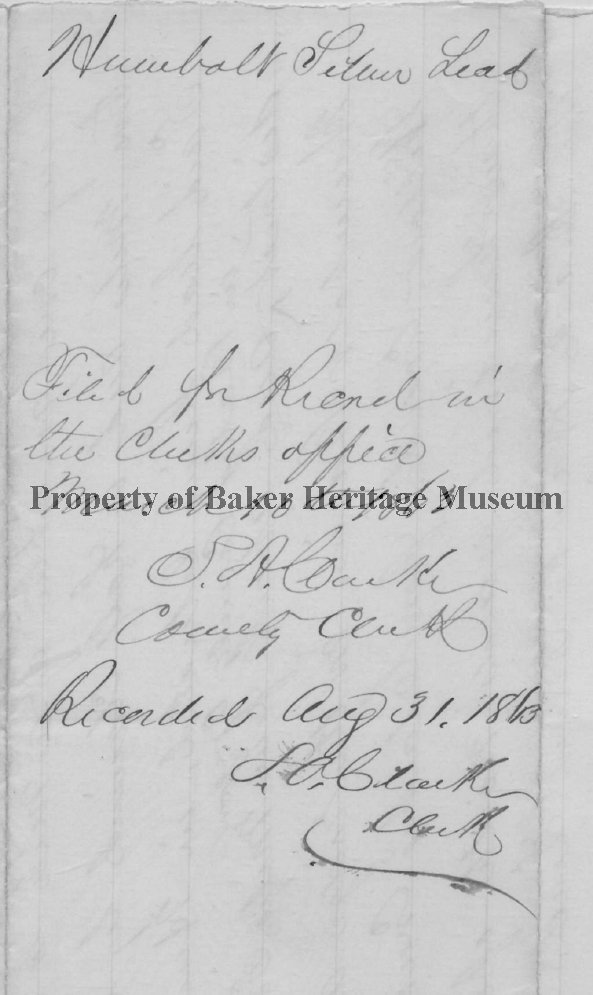 Humbolt Silver Lead
Filed for Record in
the Clerks office
Property of Baker Heritage Museum
March 10th
S. A. Clarke
County Clerk
Recorded Aug 31, 1863
S. A. Clarke
Clerk